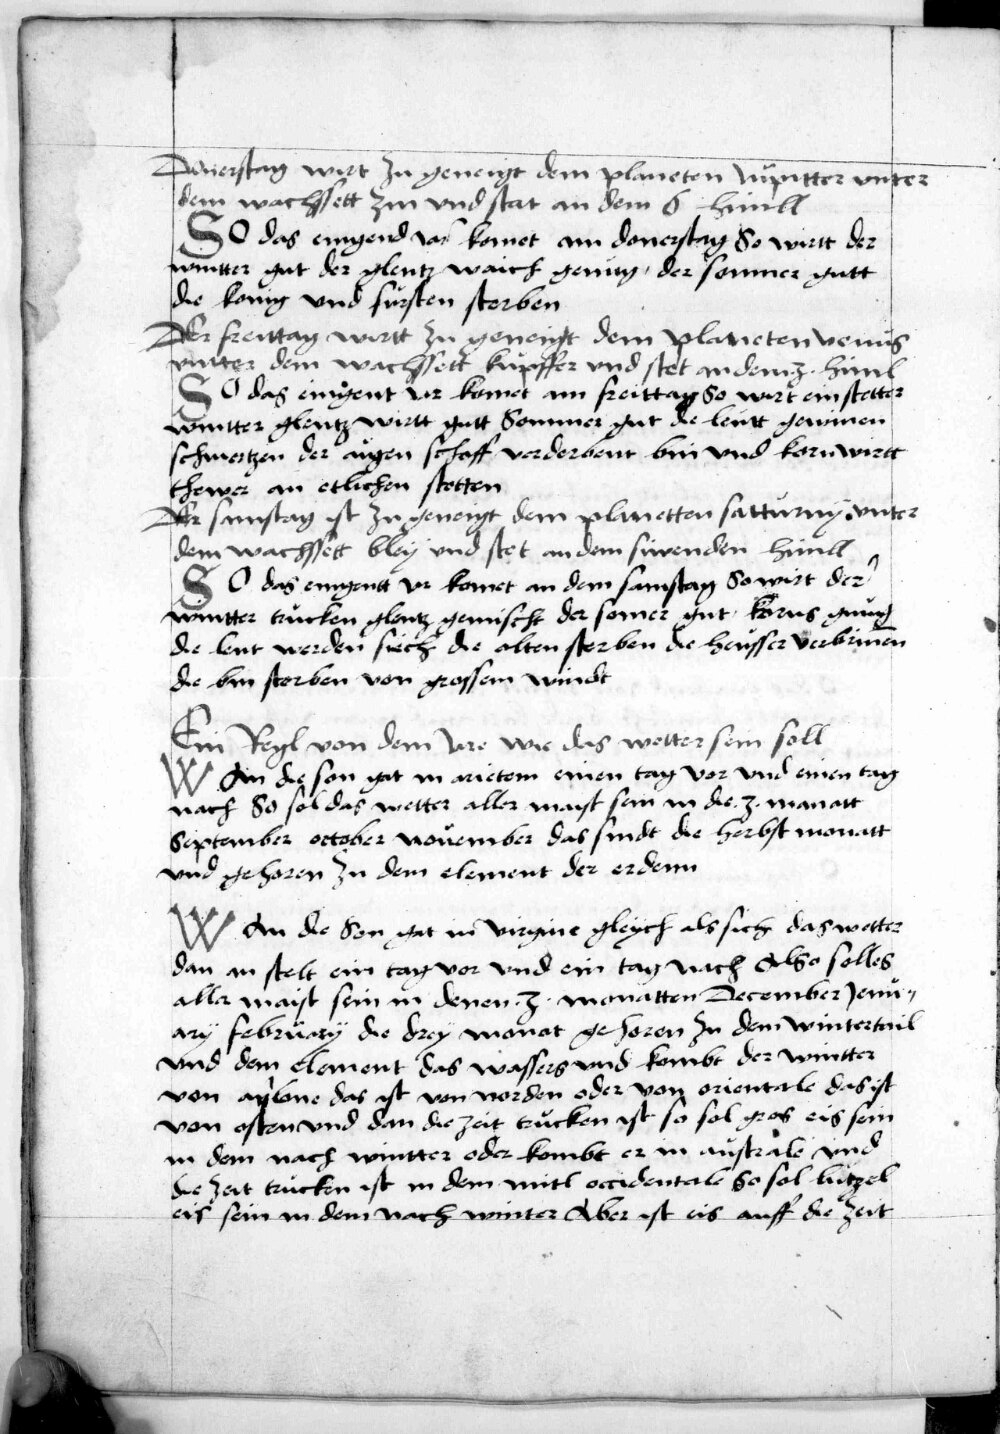 Donerstag wirt zu geneigt dem planeten Jupitter unter
dem wachssett zin vnd stat an dem 6 himll
SO das eingend Jar komet am donerstag So wirtt der
wintter gut der glentz waich genug, der sommer gutt
die konig vnd fursten sterben
Der freittag wirtt zu geneigt dem planeten venus
vnter dem wachssett kupffer vnd stet an dem z. himl
SO das eingent Jar komet am freittag So wirt ein stetter
wintter glentz wirtt gutt Sommer gut die leutt gewinen
schmertzen der augen schoff verderbent bin vnd korn wirtt
thewer an etlichen stetten
Der samstag ist zu geneigt dem planetten satturny vnter
dem wachssett bley vnd stet an dem siwenden himll
SO das eingentt Jar komet an dem samstag So wirt der
wintter trucken glentz gemischt der somer gut, korns gnug
die leut werden siech die alten sterben die heusser verbrinen
die bin sterben von grossem windt
Ein Regl von dem Jare wie das wetter sein soll
WAn die son gat in arietem einen tag vor vnd einen tag
nach So sol das wetter aller maist sein in die .z. manatt
September october november das sindt die herbst monatt
vnd gehoren zu dem element der erdenn
WAn die Son gat in virgine gleych als sich das wetter
dan an stelt ein tag vor vnd ein tag nach Also solles
aller maist sein in denen .z. monatten December Jenu„
ary february die drey monat gehoren zu dem wintertail
vnd dem element das wassers vnd kombt der wintter
von aqlone das ist von norden oder von orientale das ist
von osten vnd dan die zeit trucken ist so sol gros eis sein
in dem nach wintter oder kombt er in australe vnd
die zeit trucken ist in dem mitl occidentale So sol lutzel
eis sein in dem nach winter Aber ist eis auff die zeit